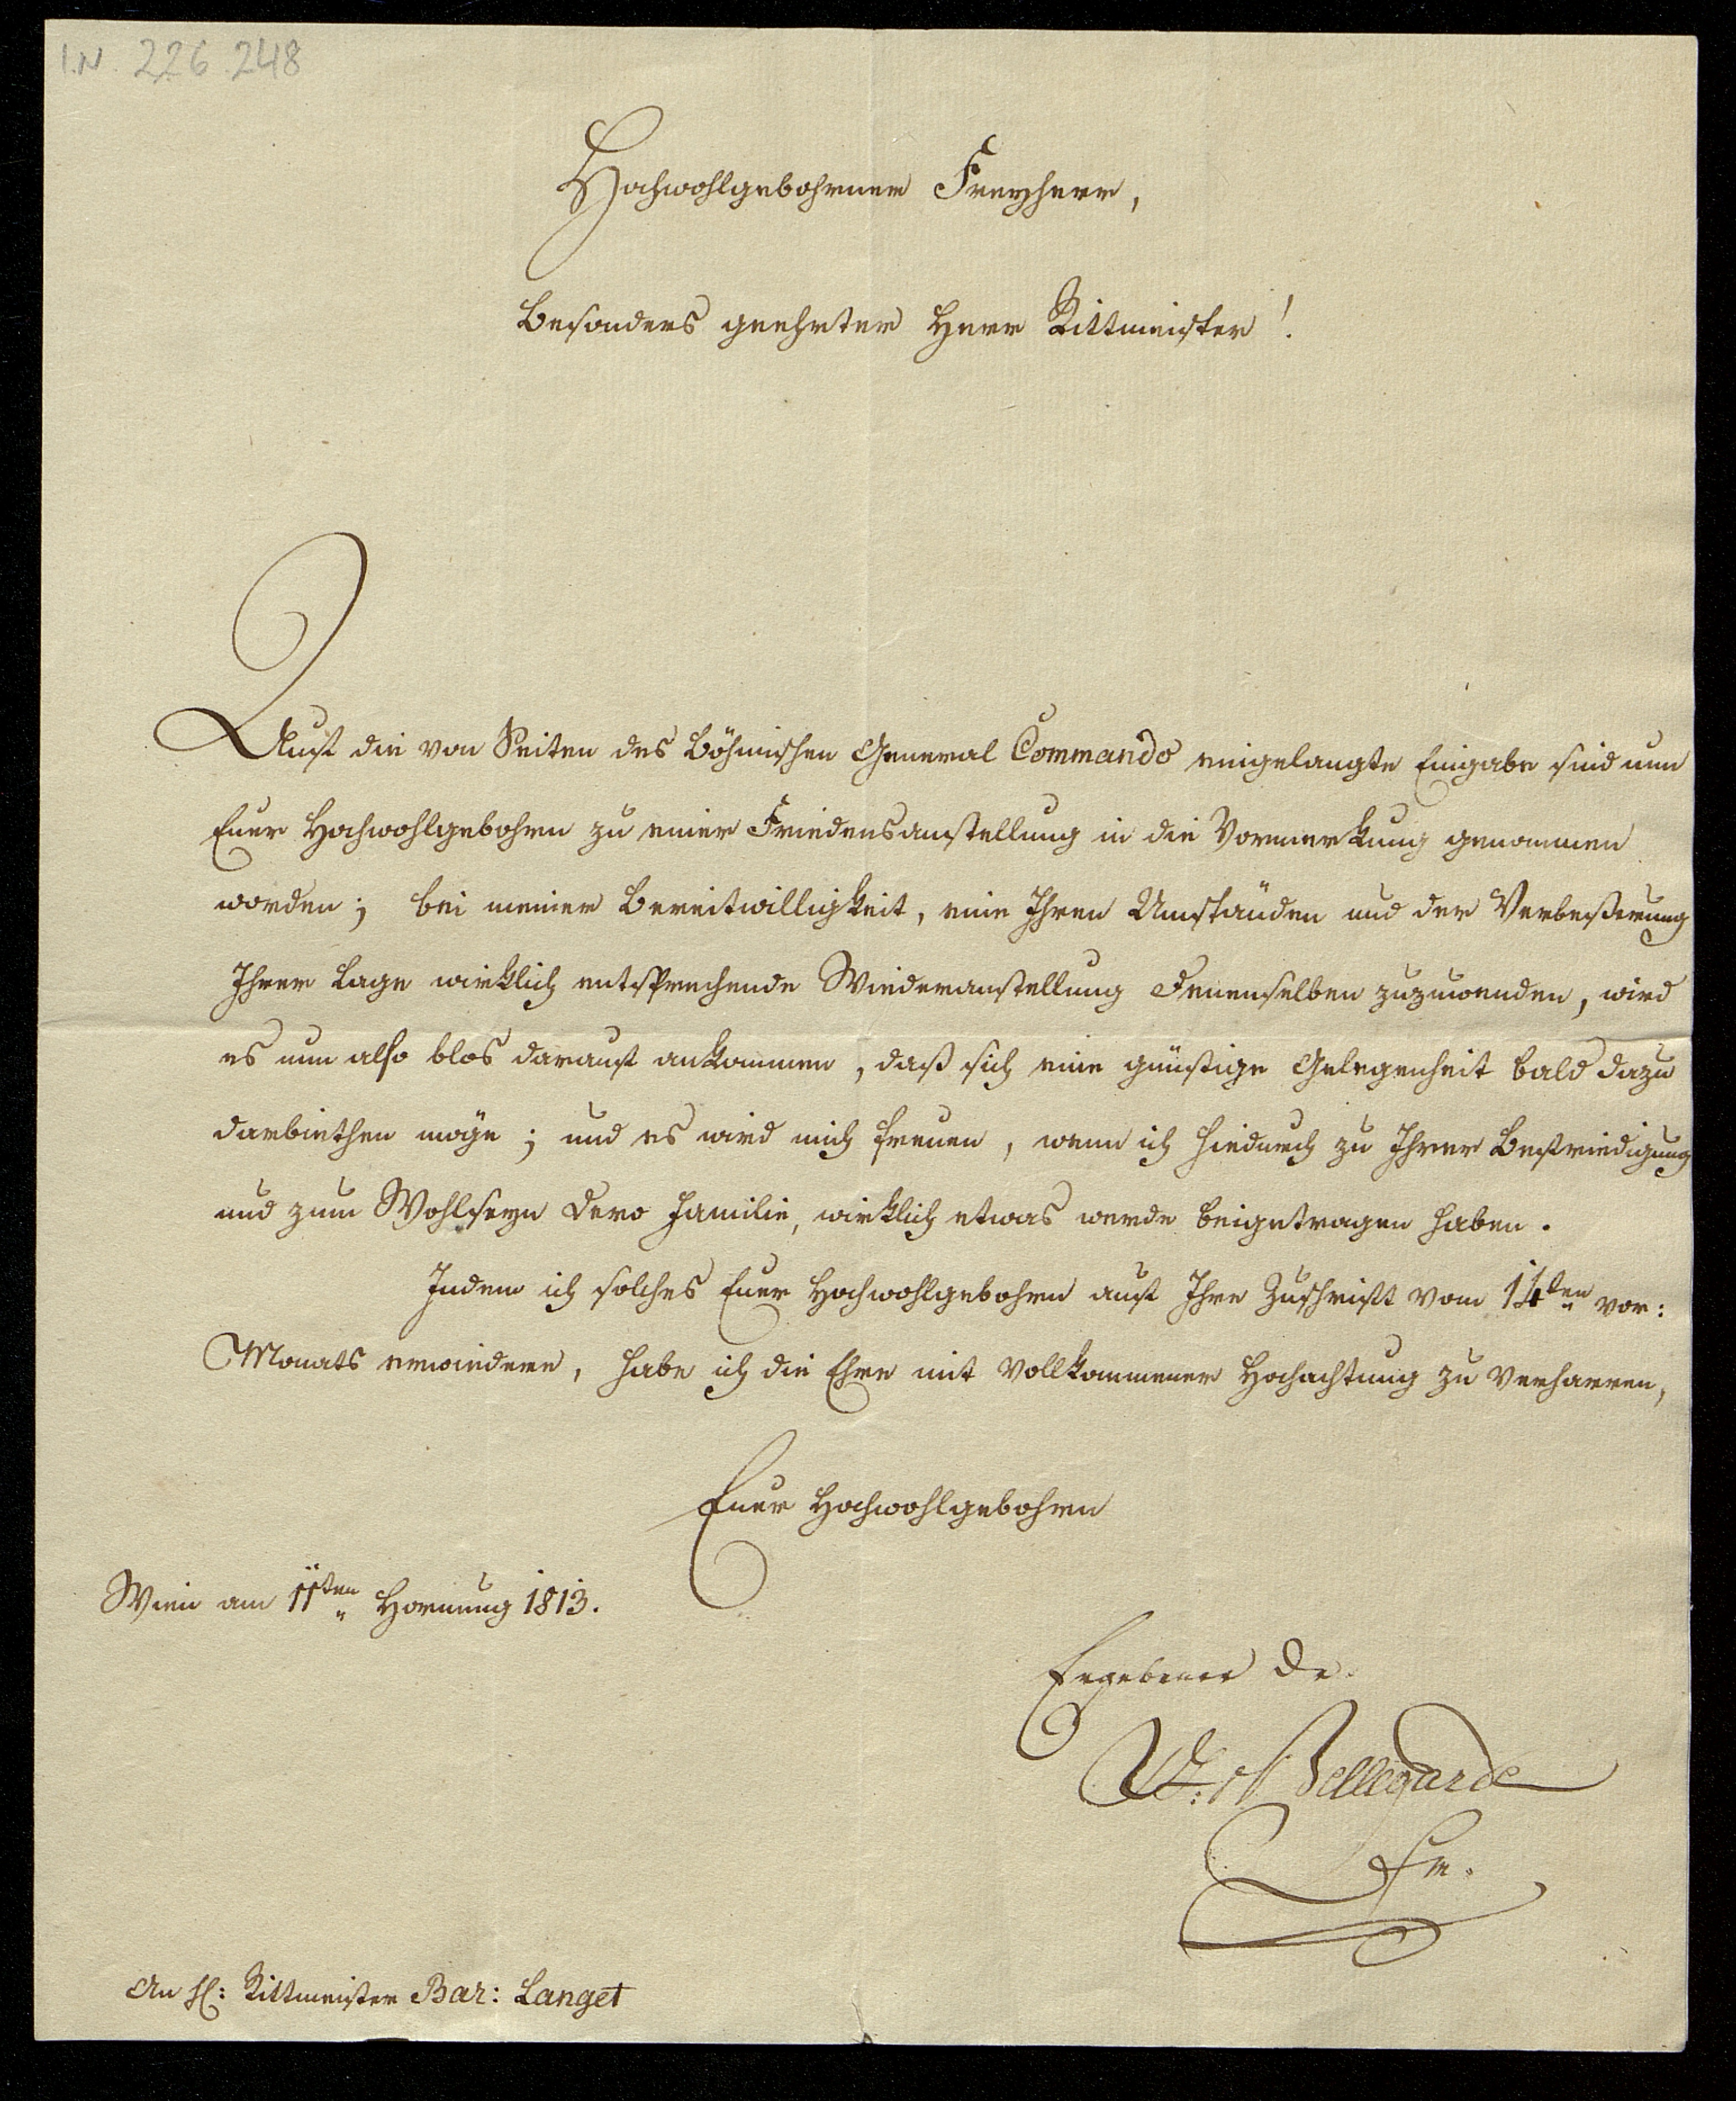 I.N. 226.248
Hochwohlgebohrner Freyherr,
Besonders geehrter Herr Rittmeister!
Auf die von Seiten des böhmischen General Commando eingelangte Eingabe sind nun
Euer Hochwohlgebohrn zu einer Friedensanstellung in die Vormerkung genommen
worden; bei meiner Bereitwilligkeit, eine Ihren Umständen und der Verbeßerung
Ihrer Lage wirklich entsprechende Wiederanstellung Denenselben zuzuwenden, wird
es nun also blos darauf ankommen, daß sich eine günstige Gelegenheit bald dazu
darbiethen möge; und es wird mich freuen, wenn ich hiedurch zu Ihrer Befriedigung
und zum Wohlseyn Dero Familie, wirklich etwas werde beigetragen haben.
Indem ich solches Euer Hochwohlgebohrn auf Ihre Zuschrift vom 14ten vor:
Monats erwiedere, habe ich die Ehre mit vollkommener Hochachtung zu verharren,
Euer Hochwohlgebohrn
Wien am 11ten Hornung 1813.
Ergebener Dr.
Bellegarde
An H: Rittmeister Bar: Langet